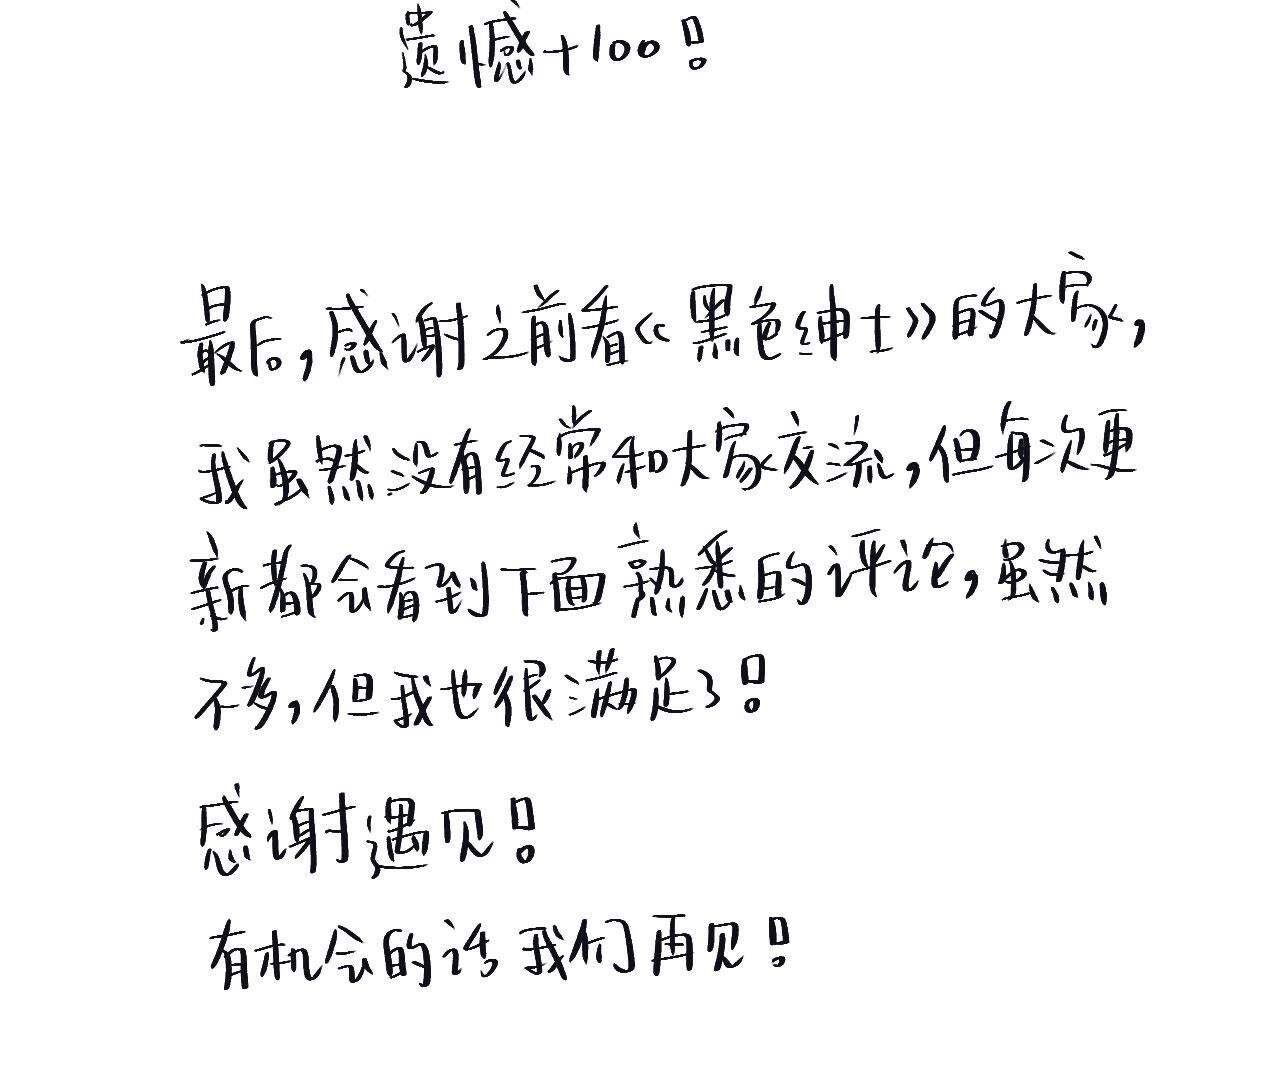 遗憾+100!
最后,感谢之前看《黑色绅士》的大家,
我虽然没有经常和大家交流,但每次更
新都会看到下面熟悉的评论,虽然
不多,但我也很满足了!
感谢遇见!
有机会的话我们再见!